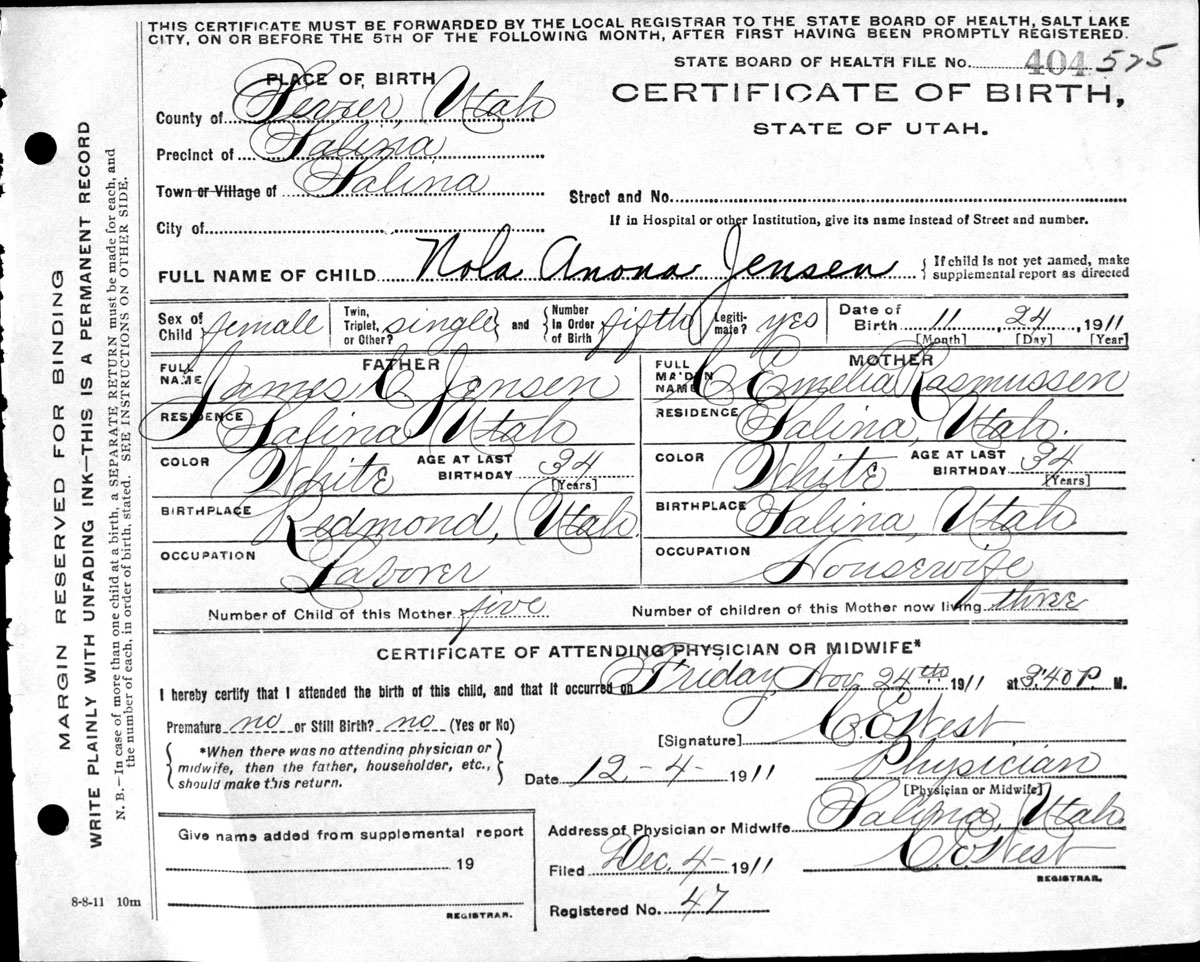 THIS CERTIFICATE MUST BE FORWARDED BY THE LOCAL REGISTRAR TO THE STATE BOARD OF HEALTH, SALT LAKE
CITY, ON OR BEFORE THE 5TH OF THE FOLLOWING MONTH, AFTER FIRST HAVING BEEN PROMPTLY REGISTERED.
STATE BOARD OF HEALTH FILE No. 404 575
PLACE OF BIRTH
CERTIFICATE OF BIRTH,
STATE OF UTAH.
County of Sevier, Utah
Precinct of Salina
Town or Village of Salina
Street and No.
If in Hospital or other Institution, give its name instead of Street and number.
City of
FULL NAME OF CHILD Nola Anona Jensen { If child is not yet named, make
supplemental report as directed
Sex of Child female Twin, Triplet, or Other? single and Number In Order of Birth fifth Legiti-mate? yes Date of Birth 11, 24, 1911
[Month] [Day] [Year]
FATHER
FULL NAME James C Jensen
RESIDENCE Salina Utah
COLOR White AGE AT LAST BIRTHDAY 34
[Years]
BIRTHPLACE Redmond, Utah.
OCCUPATION Laborer
MOTHER
FULL MAIDEN NAME C Emelia Rasmussen
RESIDENCE Salina, Utah.
COLOR White AGE AT LAST BIRTHDAY 34
[Years]
BIRTHPLACE Salina, Utah.
OCCUPATION Housewife
Number of Child of this Mother five Number of children of this Mother now living three
CERTIFICATE OF ATTENDING PHYSICIAN OR MIDWIFE*
I hereby certify that I attended the birth of this child, and that it occurred on Friday, Nov. 24th 1911 at 3:40 P. M.
Premature no or Still Birth? no (Yes or No)
[Signature] C E West
*When there was no attending physician or
midwife, then the father, householder, etc.,
should make this return.
Date 12-4- 1911 Physician
[Physician or Midwife]
Give name added from supplemental report
19
REGISTRAR.
Address of Physician or Midwife Salina, Utah.
Filed Dec. 4- 1911 C. E. West
REGISTRAR.
Registered No. 47
8-8-11 10m
MARGIN RESERVED FOR BINDING
WRITE PLAINLY WITH UNFADING INK—THIS IS A PERMANENT RECORD
N. B.—In case of more than one child at a birth, a SEPARATE RETURN must be made for each, and
the number of each, in order of birth, stated. SEE INSTRUCTIONS ON OTHER SIDE.